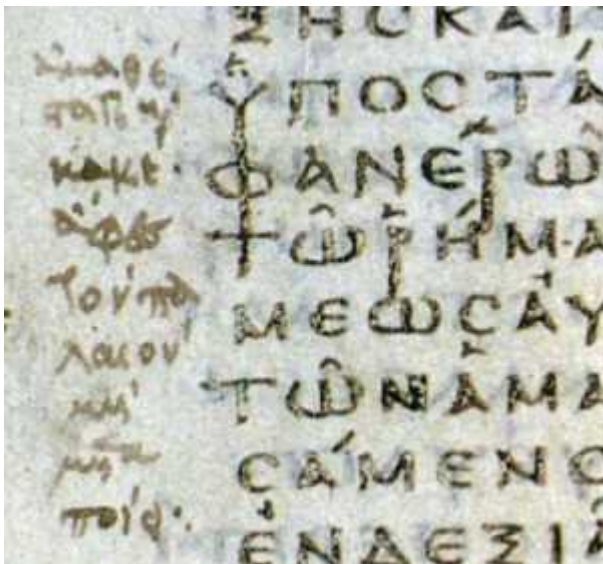 ἀμαθέ
στατε κ
κακέ·
ἄφες
τὸν πα
λαιόν
μὴ
μετα
ποίει·
ΞΗϹΚΑΙ
ΥΠΟϹΤΆ
ΦΑΝΕΡΩ͂
ΤΩ͂ΡΉΜΑ
ΜΕΩϹΑΥ
ΤΩ͂ΝἉΜΑ
ϹΆΜΕΝΟ
ἘΝΔΕΞΙΑ͂